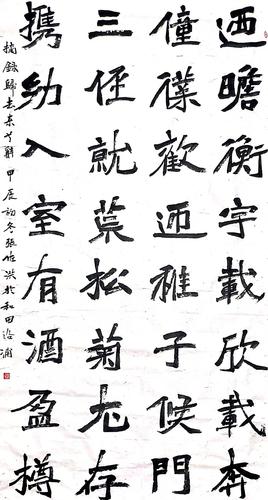 迺瞻衡宇載欣載奔
僮僕歡迎稚子候門
三徑就荒松菊尤存
携幼入室有酒盈樽
摘錄歸去來兮辭 甲辰初冬張洪於和田洛浦